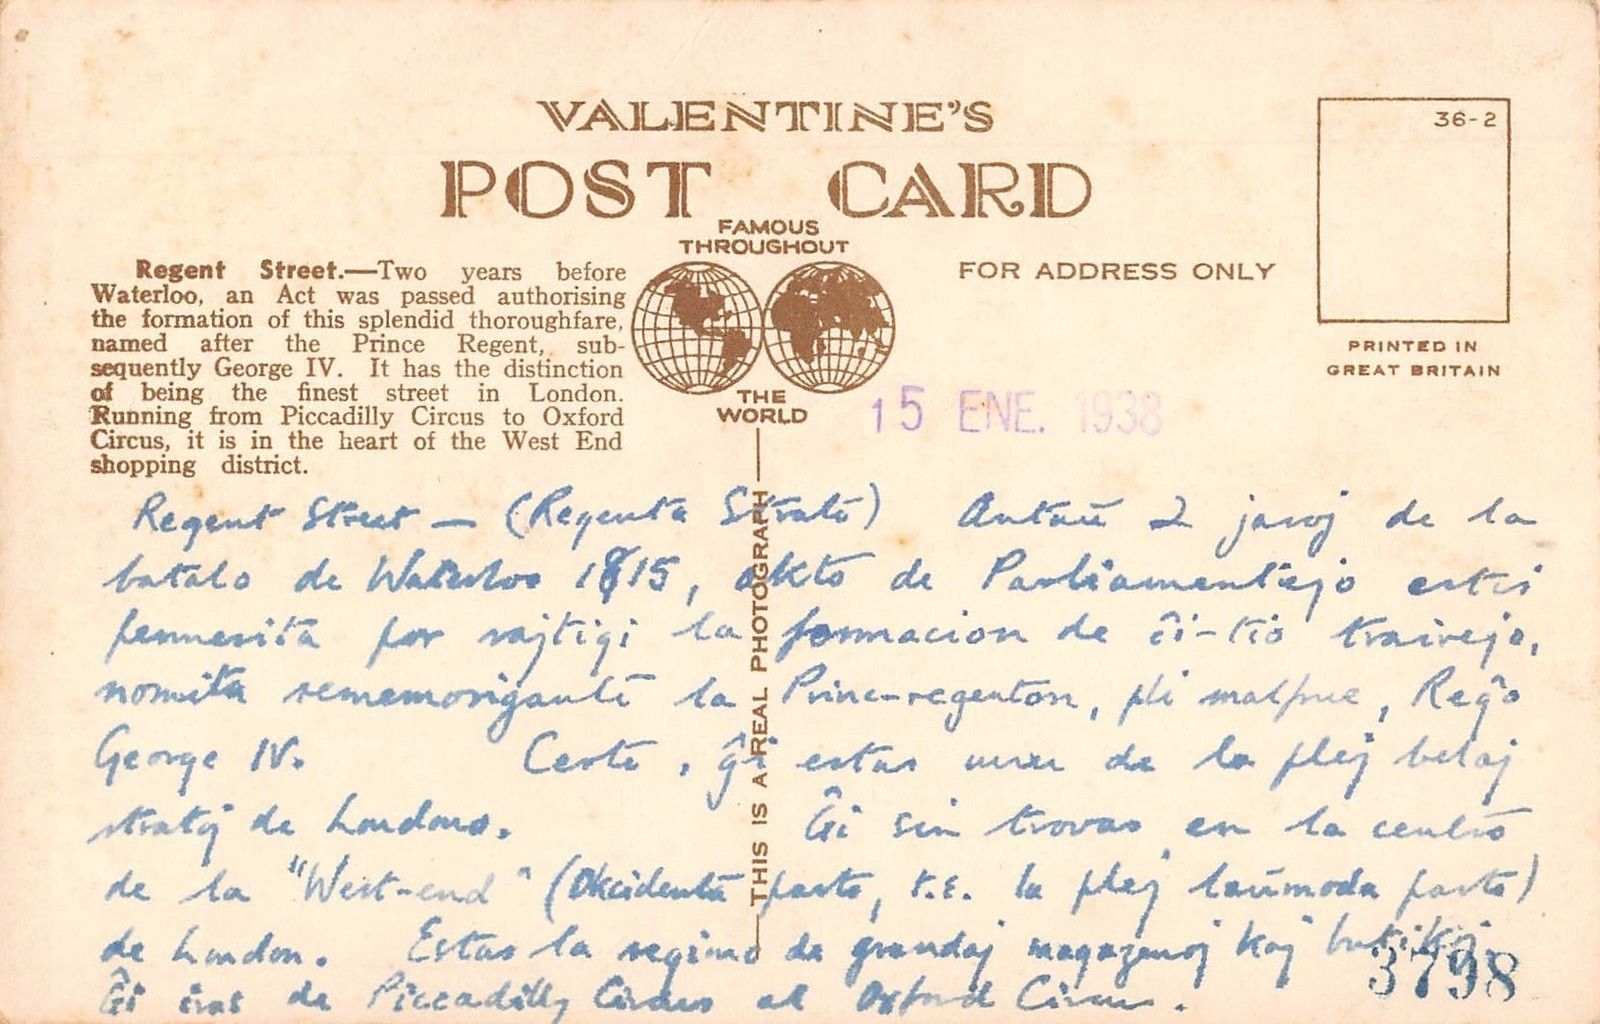 VALENTINE'S
POST CARD
36-2
FAMOUS
THROUGHOUT
THE
WORLD
FOR ADDRESS ONLY
PRINTED IN
GREAT BRITAIN
Regent Street.—Two years before
Waterloo, an Act was passed authorising
the formation of this splendid thoroughfare,
named after the Prince Regent, sub-
sequently George IV. It has the distinction
of being the finest street in London.
Running from Piccadilly Circus to Oxford
Circus, it is in the heart of the West End
shopping district.
15 ENE. 1938
THIS IS A REAL PHOTOGRAPH
Regent Street — (Regenta Strato) Antaŭ 2 jaroj de la
batalo de Waterloo 1815, akto de Parliamentejo estis
permesita por rajtigi la formacion de ĉi-tio trairejo,
nomita rememorigante la Princ-regenton, pli malfrue, Reĝo
George IV. Certe, ĝi estas unu de la plej belaj
stratoj de Londono. Ĝi sin trovas en la centro
de la "West-end" (Okcidenta parto, t.e. la plej laŭmoda parto)
de London. Estas la regimo de grandaj magazenoj kaj butikoj.
Ĝi iras de Piccadilly Circus al Oxford Circus.
3798